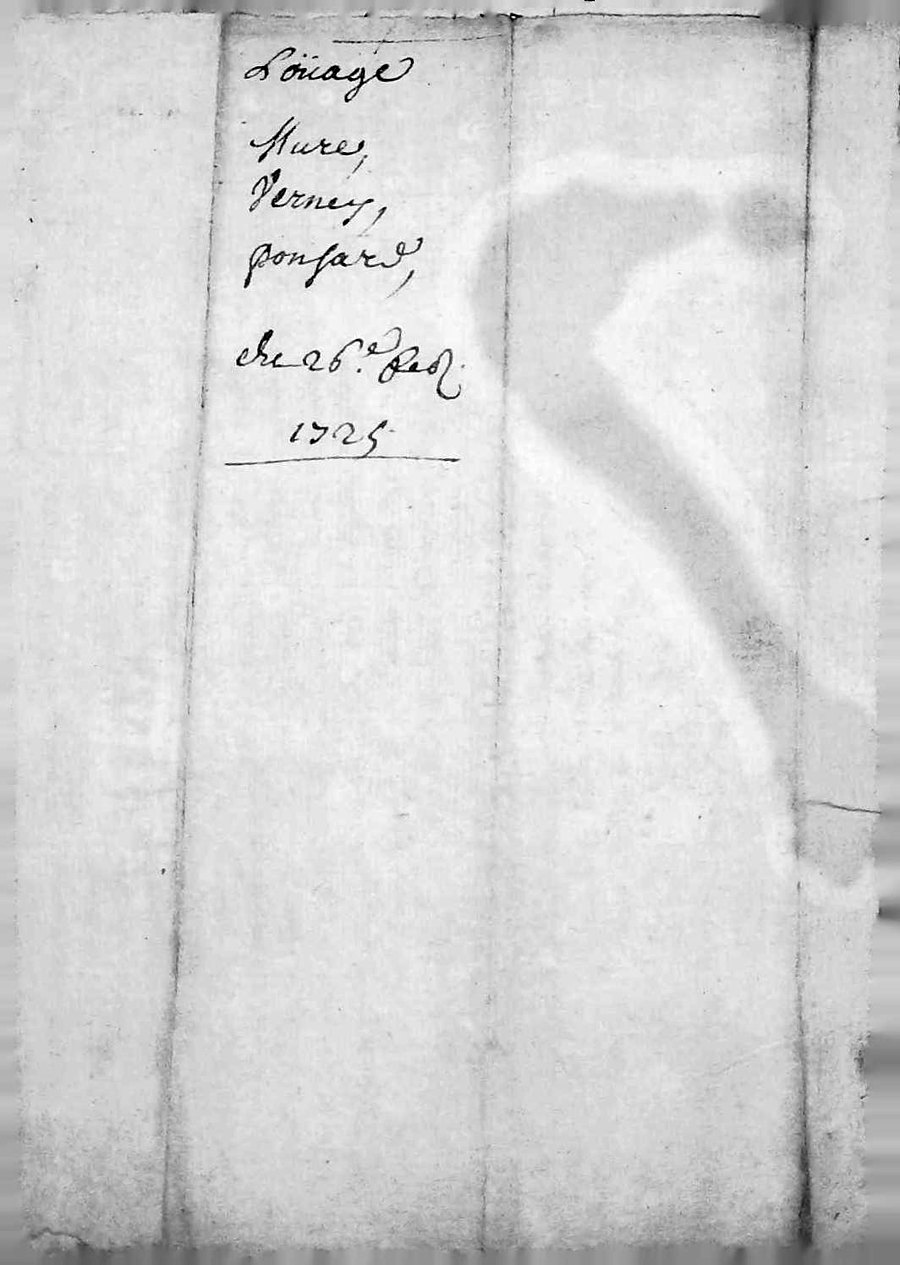 Loüage
Mure,
Verney,
ponsard,
du 26.e feb.
1725